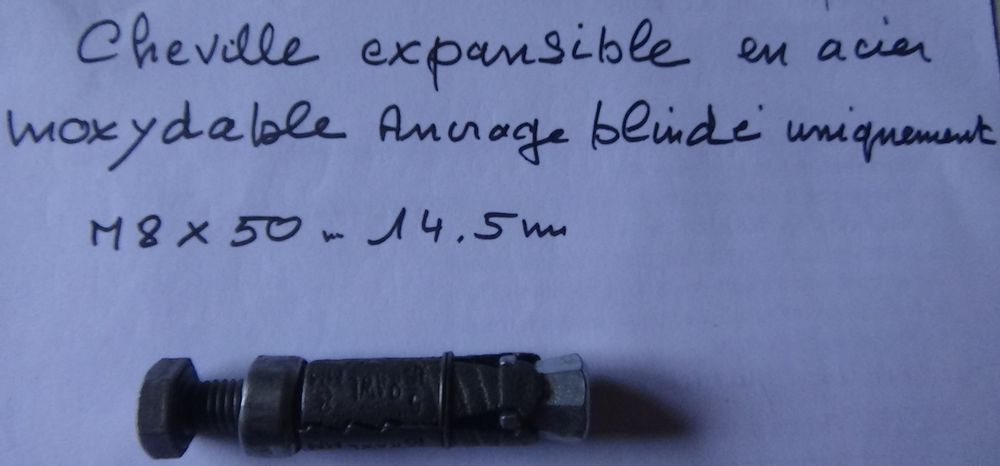 Cheville expansible en acier
inoxydable Ancrage blindé uniquement
M8 x 50 - 14.5mm